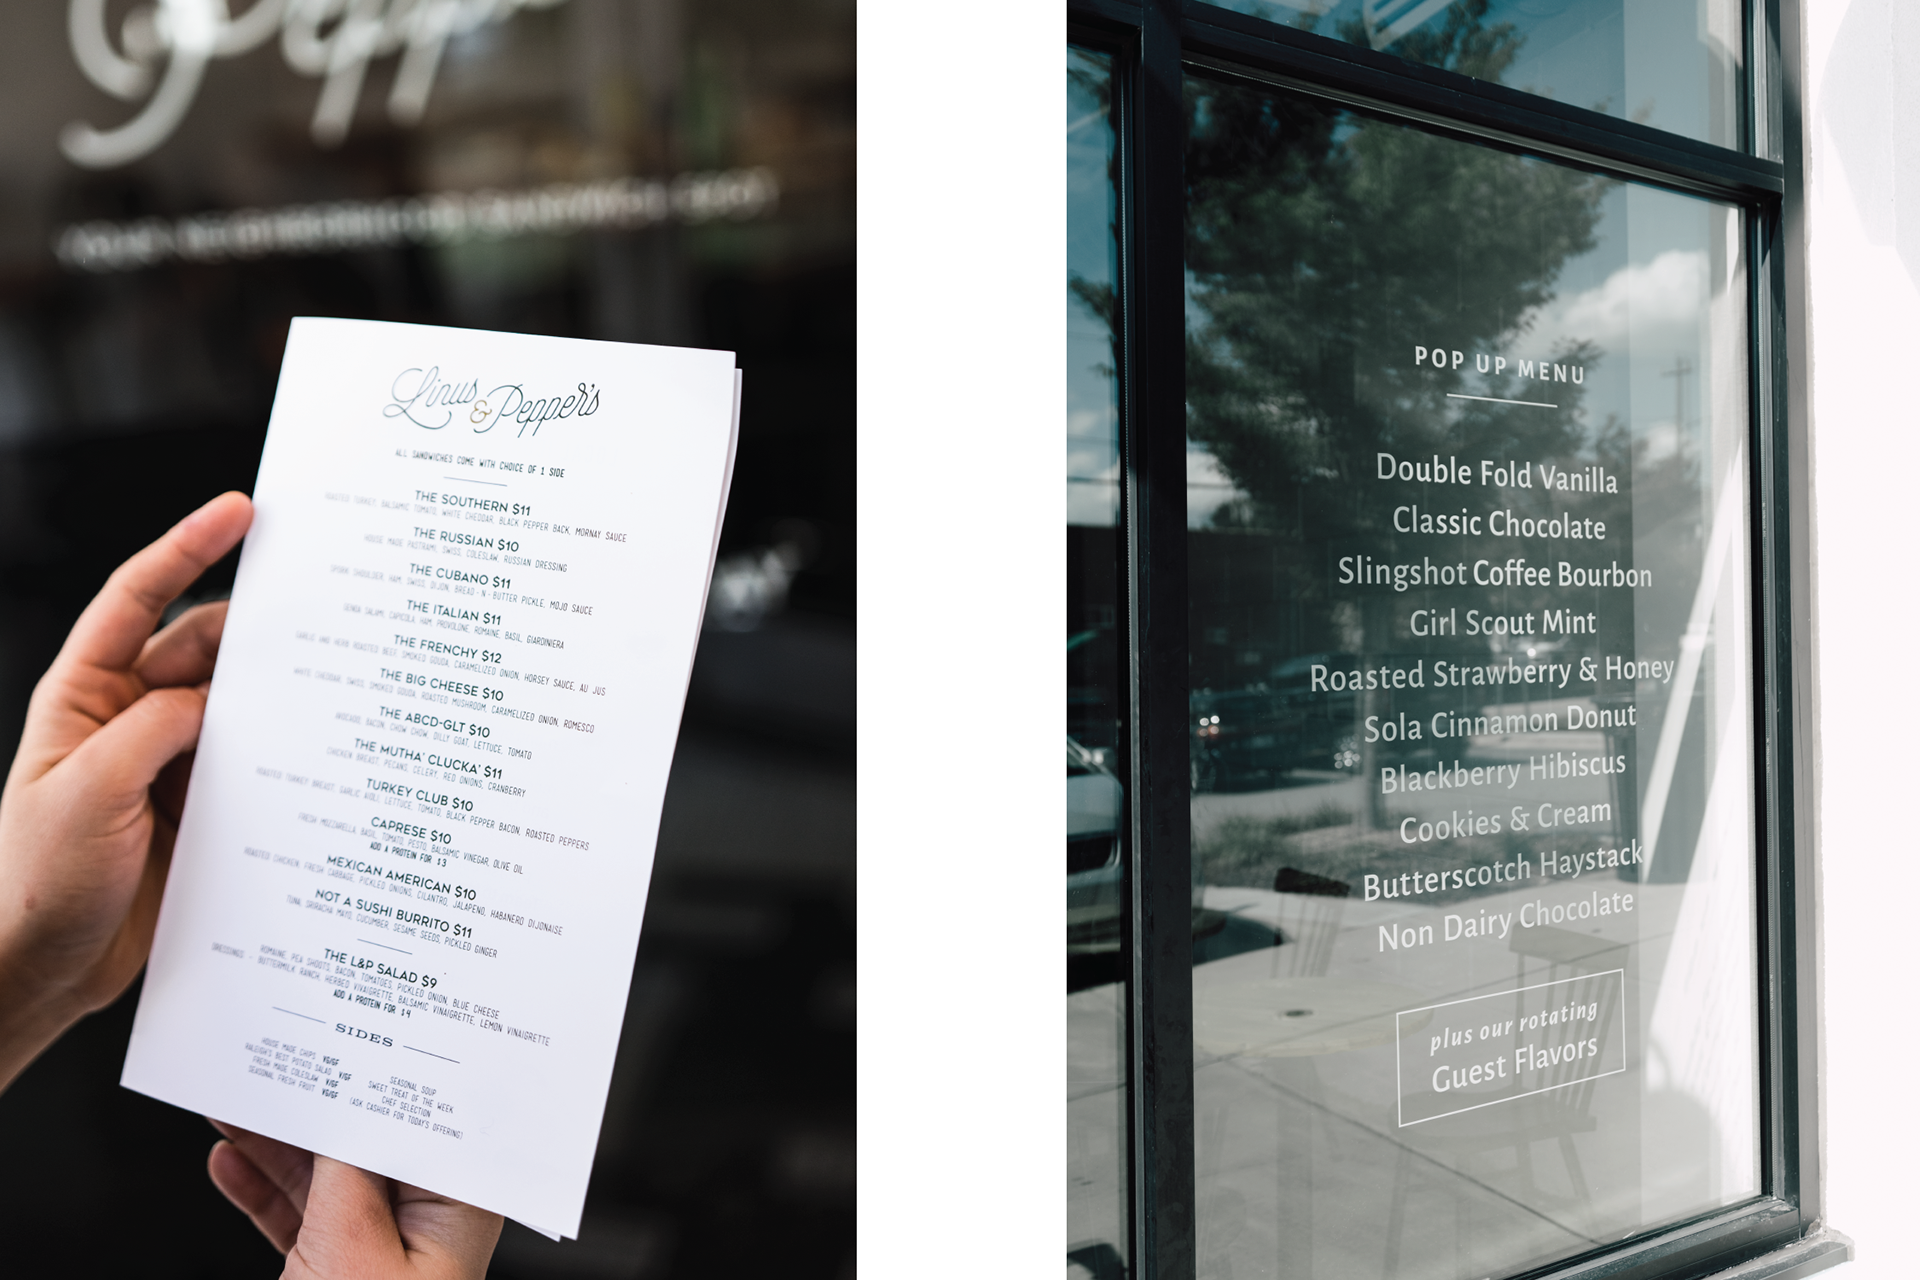 Pepp
Linus & Pepper's
ALL SANDWICHES COME WITH CHOICE OF 1 SIDE
THE SOUTHERN $11
ROASTED TURKEY, BALSAMIC TOMATO, WHITE CHEDDAR, BLACK PEPPER BACK, MORNAY SAUCE
THE RUSSIAN $10
HOUSE MADE PASTRAMI, SWISS, COLESLAW, RUSSIAN DRESSING
THE CUBANO $11
SHOULDER, HAM, SWISS, DIJON, BREAD-N-BUTTER PICKLE, MOJO SAUCE
THE ITALIAN $11
GENOA SALAMI, CAPICOLA HAM, PROVOLONE, ROMAINE, BASIL, GIARDINIERA
THE FRENCHY $12
GARLIC AND HERB ROASTED BEEF, SMOKED GOUDA, CARAMELIZED ONION, HORSEY SAUCE, AU JUS
THE BIG CHEESE $10
WHITE CHEDDAR, SWISS, SMOKED GOUDA, ROASTED MUSHROOM, CARAMELIZED ONION, ROMESCO
THE ABCD-GLT $10
AVOCADO, BACON, CHOW CHOW, DILLY GOAT, LETTUCE, TOMATO
THE MUTHA' CLUCKA' $11
CHICKEN BREAST, PECANS, CELERY, RED ONIONS, CRANBERRY
TURKEY CLUB $10
ROASTED TURKEY BREAST, GARLIC AIOLI, LETTUCE, TOMATO, BLACK PEPPER BACON, ROASTED PEPPERS
CAPRESE $10
FRESH MOZZARELLA, BASIL, TOMATO, PESTO, BALSAMIC VINEGAR, OLIVE OIL
ADD A PROTEIN FOR $3
MEXICAN AMERICAN $10
ROASTED CHICKEN, FRESH CABBAGE, PICKLED ONIONS, CILANTRO, JALAPENO, HABANERO DIJONAISE
NOT A SUSHI BURRITO $11
TUNA, SRIRACHA MAYO, CUCUMBER, SESAME SEEDS, PICKLED GINGER
THE L&P SALAD $9
ROMAINE, PEA SHOOTS, BACON, TOMATOES, PICKLED ONION, BLUE CHEESE
DRESSINGS - BUTTERMILK RANCH, HERBED VIVAIGRETTE, BALSAMIC VINAIGRETTE, LEMON VINAIGRETTE
ADD A PROTEIN FOR $4
SIDES
HOUSE MADE CHIPS VG/GF
RALEIGH'S BEST POTATO SALAD V/GF
FRESH MADE COLESLAW V/GF
SEASONAL FRESH FRUIT VG/GF
SEASONAL SOUP
SWEET TREAT OF THE WEEK
CHEF SELECTION
(ASK CASHIER FOR TODAY'S OFFERING)
POP UP MENU
Double Fold Vanilla
Classic Chocolate
Slingshot Coffee Bourbon
Girl Scout Mint
Roasted Strawberry & Honey
Sola Cinnamon Donut
Blackberry Hibiscus
Cookies & Cream
Butterscotch Haystack
Non Dairy Chocolate
plus our rotating
Guest Flavors